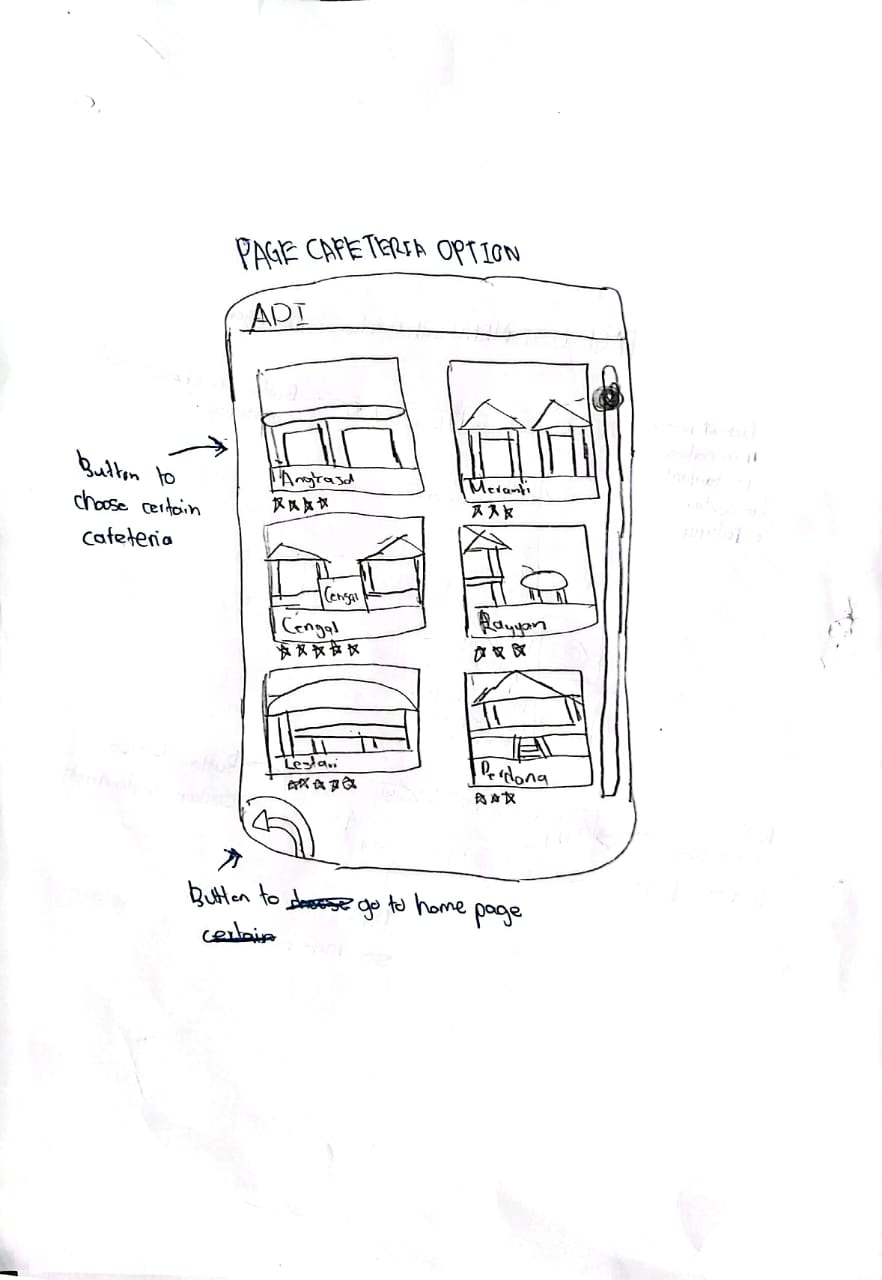 PAGE CAFETERIA OPTION
ADI
Button to
choose certain
cafeteria
Angkasa
Meranti
Cengal
Cengal
Rayyan
Lestari
Perdana
Button to choose go to home page
certain